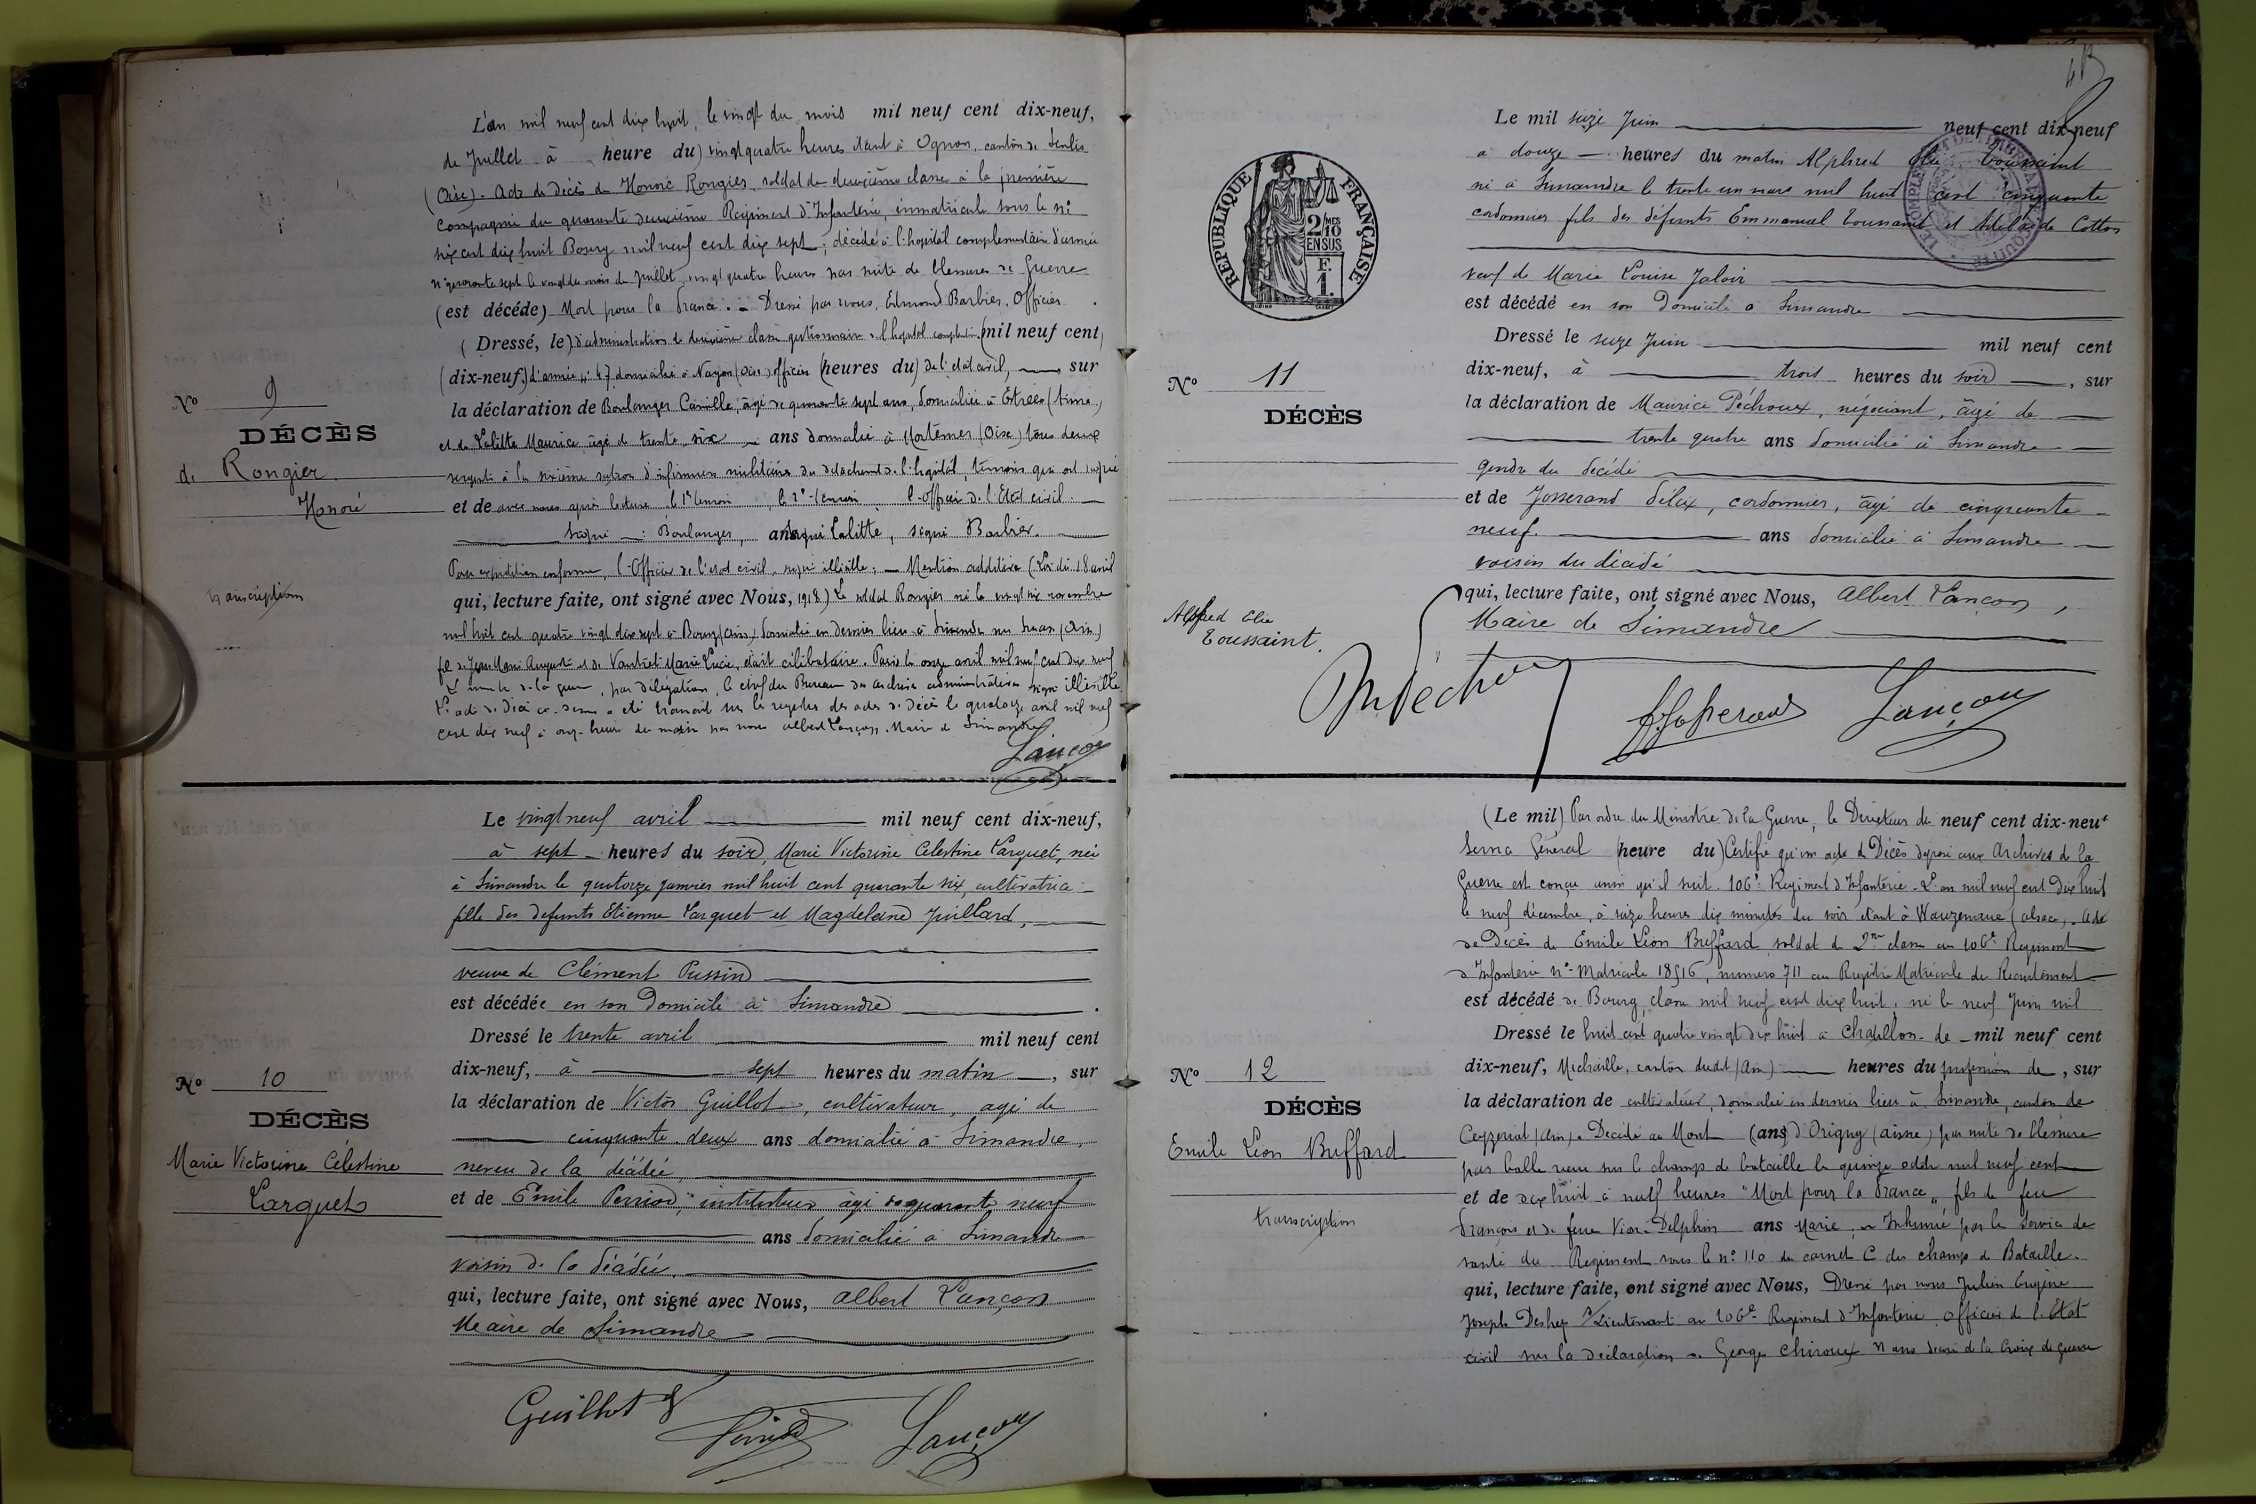 L'an mil neuf cent dix huit, le vingt du mois mil neuf cent dix-neuf,
de Juillet à heure du) vingt quatre heures étant à Ognon, canton de Senlis
(Oise). Acte de décès de Honoré Rongier, soldat de deuxième classe à la première
Compagnie du quarante deuxième Régiment d'Infanterie, immatriculé sous le n°
six cent dix huit Bourg mil neuf cent dix sept ; décédé à l'hopital complémentaire d'armée
n° quarante sept le vingt du mois de Juillet, vingt quatre heures par suite de blessures de Guerre
(est décédé) Mort pour la France. - Dressé par nous, Edmond Barbier, Officier
( Dressé, le) d'administration de deuxième classe gestionnaire l'hopital complém. (mil neuf cent)
(dix-neuf,) d'armée n° 47 domicilié à Noyon (Oise) officier (heures du) de l'état civil, sur
la déclaration de Boulanger Camille, âgé de quarante sept ans, domicilié à Estrées
et de Lalitte Maurice âgé de trente six ans domicilié à Mortemer (Oise) tous deux
sergents à la sixième section d'infirmiers militaires du détachement de l'hopital, témoins qui ont signé
et de avec nous après lecture. le 1er témoin, le 2e témoin l'officier de l'Etat civil.
signé : Boulanger, ans signé Lalitte, signé Barbier.
Pour expédition conforme, l'Officier de l'état civil, signé illisible. - Mention additive (Loi du 18 avril
qui, lecture faite, ont signé avec Nous, 1918.) Le soldat Rongier né le vingt six novembre
mil huit cent quatre vingt dix sept à Bourg (Ain), domicilié en dernier lieu à Simandre sur Suran (Ain)
fils de Jean Marie Auguste et de Marie Lucie, était célibataire. Paris le onze avril mil neuf cent dix neuf
de la guerre, par délégation, le chef du Bureau des archives administratives signé illisible.
L'acte de décès ci-dessus a été transcrit sur les registres des actes de décès le quatorze avril mil neuf
cent dix neuf à onze heures du matin par nous Albert Lançon, Maire de Simandre
Lançon
N° 9
DÉCÈS
de Rongier
Honoré
transcription
Le vingt neuf avril mil neuf cent dix-neuf,
à sept heures du soir, Marie Victorine Célestine Larguet, née
à Simandre le quatorze janvier mil huit cent quarante six, cultivatrice
fille des défunts Etienne Larguet et Magdeleine Juillard,
veuve de Clément Pussin
est décédée en son domicile à Simandre
Dressé le trente avril mil neuf cent
dix-neuf, à sept heures du matin, sur
la déclaration de Victor Guillot, cultivateur, âgé de
cinquante deux ans domicilié à Simandre
neveu de la décédée,
et de Emile Perriod, instituteur âgé de quarante neuf
ans domicilié à Simandre
voisin de la décédée.
qui, lecture faite, ont signé avec Nous, Albert Lançon
Maire de Simandre
Guillot
Perriod
Lançon
N° 10
DÉCÈS
Marie Victorine Célestine
Larguet
RÉPUBLIQUE FRANÇAISE
2/10 MES
EN SUS
F.
1.
Le mil seize Juin neuf cent dix-neuf
à douze heures du matin Alphred Elie Toussaint
né à Simandre le trente un mars mil huit cent cinquante
cordonnier fils des défunts Emmanuel Toussaint et Adelaïde Cotton
veuf de Marie Louise Jaloir
est décédé en son domicile à Simandre
Dressé le seize Juin mil neuf cent
dix-neuf, à trois heures du soir, sur
la déclaration de Maurice Péchoux, négociant, âgé de
trente quatre ans domicilié à Simandre
gendre du décédé
et de Josserand Félix, cordonnier, âgé de cinquante
neuf. ans domicilié à Simandre
voisin du décédé
qui, lecture faite, ont signé avec Nous, Albert Lançon,
Maire de Simandre
Péchoux
Josserand
Lançon
N° 11
DÉCÈS
Alfred Elie
Toussaint.
(Le mil) Par ordre du Ministre de la Guerre, le Directeur du neuf cent dix-neuf
Général (heure du) Certifie qu'un acte de Décès déposé aux Archives de la
Guerre est conçu ainsi qu'il suit. 106e Régiment d'Infanterie. L'an mil neuf cent dix huit
le neuf décembre, à seize heures dix minutes du soir étant à Wauzenau (Alsace). Acte
de Décès de Emile Léon Buffard soldat de 2me classe au 106e Régiment
d'Infanterie N° Matricule 18516, numéro 711 au Registre Matricule du Recrutement
est décédé de Bourg, classe mil neuf cent dix huit, né le neuf Juin mil
Dressé le huit cent quatre vingt dix huit à Chatillon de mil neuf cent
dix-neuf, Michaille, canton dudit (Ain) heures du profession de, sur
la déclaration de cultivateur, domicilié en dernier lieu à Simandre, canton de
Ceyzeriat (Ain). Décédé au Mont (ans) d'Origny (Aisne) par suite de blessure
par balle reçue sur le champ de bataille le quinze octobre mil neuf cent
et de dix huit à neuf heures "Mort pour la France" fils de feu
François et de feue Delphin ans Marie. Inhumé par le Service de
santé du Régiment sous le n° 110 du carnet C du champ de Bataille.
qui, lecture faite, ont signé avec Nous, Dressé par nous Julien Eugène
Joseph S/Lieutenant au 106e Régiment d'Infanterie Officier de l'Etat
civil sur la déclaration de George Chiroux décoré de la Croix de guerre
N° 12
DÉCÈS
Emile Léon Buffard
transcription